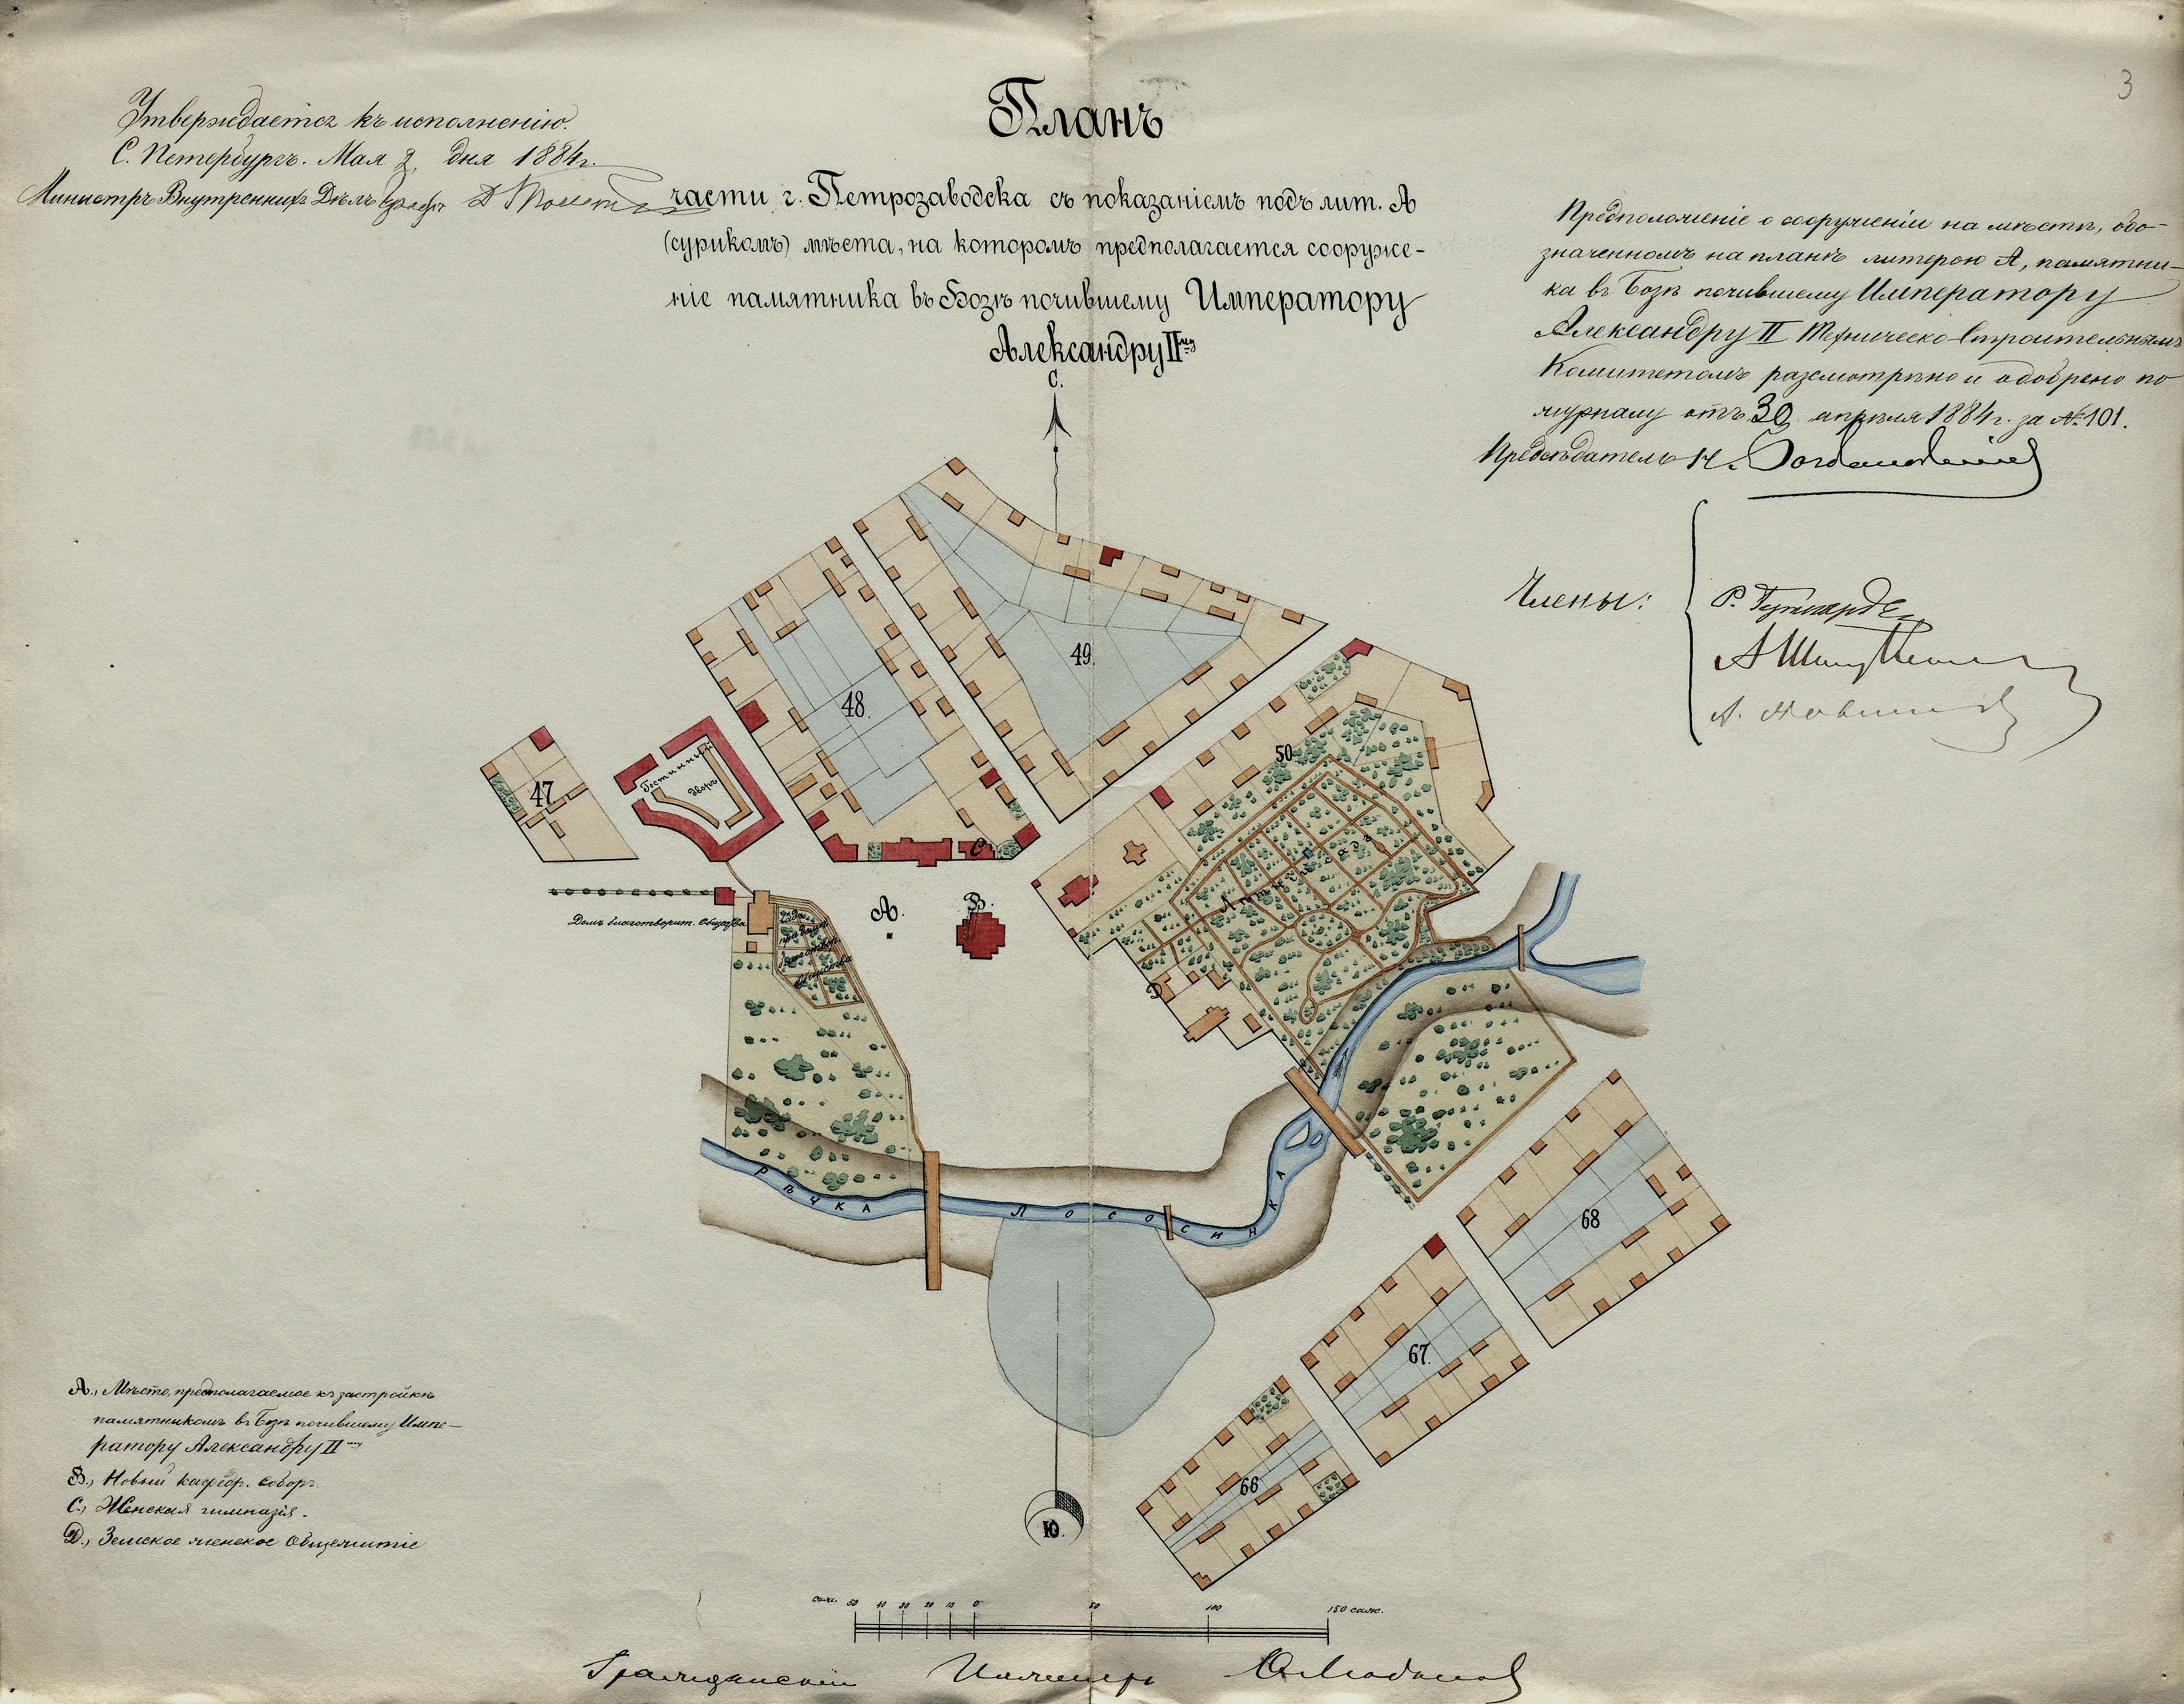 3
Утверждается къ исполненію.
С. Петербургъ. Мая 2 дня 1884 г.
Министръ Внутреннихъ Дѣлъ Графъ Д Толстой
Планъ
части г. Петрозаводска съ показаніемъ подъ лит. А
(сурикомъ) мѣста, на которомъ предполагается сооруже-
ніе памятника въ Бозѣ почившему Императору
Александру II му
Предположеніе о сооруженіи на мѣстѣ, обо-
значенномъ на планѣ литерою А, памятни-
ка въ Бозѣ почившему Императору
Александру II Техническо-Строительнымъ
Комитетомъ разсмотрѣно и одобрено по
журналу отъ 30 апрѣля 1884 г. за № 101.
Предсѣдатель Н.
Члены:
С.
49.
48.
50
47
Гостинный
дворъ
С
А.
В.
Домъ благотворит. Общества
Садъ
при домѣ
благотвор.
общества
Лѣтній садъ
D
РѢЧКА ЛОСОСИНКА
68
67.
66
Ю.
А., Мѣсто, предполагаемое къ застройкѣ
памятникомъ въ Бозѣ почившему Импе-
ратору Александру II му
В., Новый кафедр. соборъ.
С., Женская гимназія.
D., Земское женское Общежитіе
саж. 50 40 30 20 10 0 50 100 150 саж.
Гражданскій Инженеръ